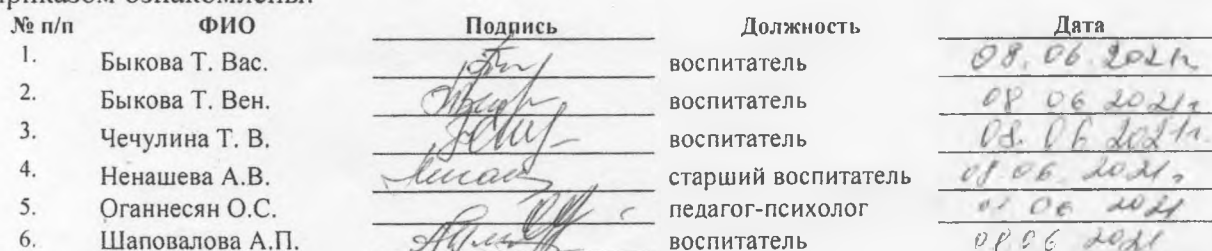 приказом ознакомлены:
№ п/п ФИО Подпись Должность Дата
1. Быкова Т. Вас. воспитатель 08.06.2021г
2. Быкова Т. Вен. воспитатель 08 06 2021г
3. Чечулина Т. В. воспитатель 08.06 2021г.
4. Ненашева А.В. старший воспитатель 08 06 2021г
5. Оганнесян О.С. педагог-психолог 06 2021
6. Шаповалова А.П. воспитатель 08 06 2021